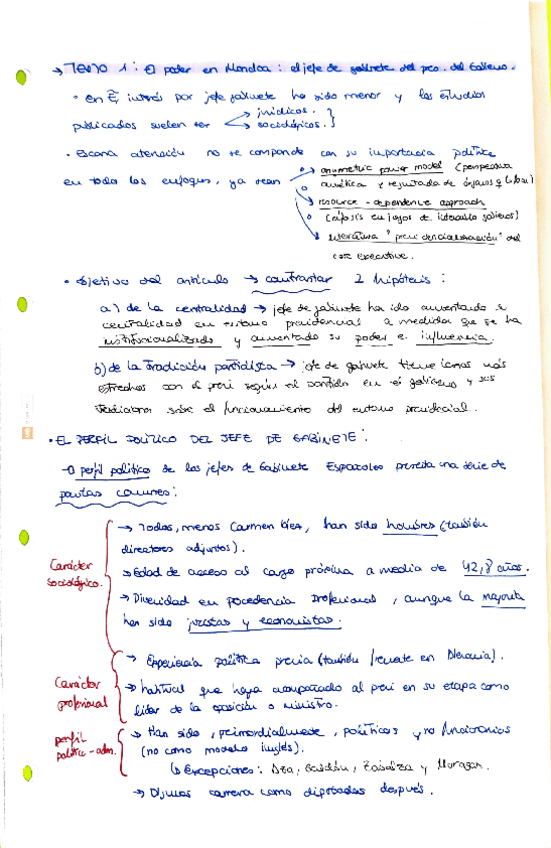 → TEXTO 1: El poder en Moncloa: el jefe de gabinete del pres. del Gobierno.
• en E, interés por jefe gabinete ha sido menor y los estudios
publicados suelen ser → jurídicos.
→ sociológicos.
• Escasa atención no se corresponde con su importancia política
en todos los enfoques, ya sean → asymmetric power model (perspectiva
analítica y regulada de órganos
→ resource-dependence approach
(énfasis en juegos de
→ literatura "presidencialización" del
core executive.
• Objetivo del artículo → contrastar 2 hipótesis:
a) de la centralidad → jefe de gabinete ha ido aumentando su
centralidad en entorno presidencial a medida que se ha
institucionalizado y aumentado su poder e influencia.
b) de la tradición partidista → jefe de gabinete tiene lazos más
estrechos con el presi según el partido en el gobierno y sus
tradiciones sobre el funcionamiento del entorno presidencial.
• EL PERFIL POLÍTICO DEL JEFE DE GABINETE:
- El perfil político de los jefes de Gabinete Españoles presenta una serie de
pautas comunes:
Carácter
sociológico.
→ Todos, menos Carmen Díez, han sido hombres (también
directores adjuntos).
→ Edad de acceso al cargo próxima a media de 42,8 años.
→ Diversidad en procedencia profesional, aunque la mayoría
han sido juristas y economistas.
Carácter
profesional
→ Experiencia política previa (también frecuente en Alemania).
→ habitual que haya acompañado al presi en su etapa como
líder de la oposición o ministro.
perfil
político-adm.
→ Han sido, primordialmente, políticos y no funcionarios
(no como modelo inglés).
↳ Excepciones: Zabalza y Moragas.
→ Algunos carrera como diputados después.